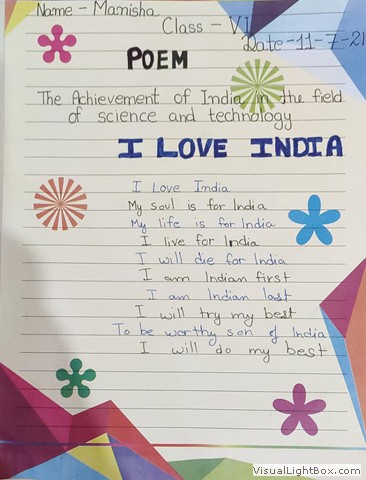 Name - Manisha
Class - VI
Date-11-7-21
POEM
The Achievement of India in the field
of science and technology
I LOVE INDIA
I Love India
My soul is for India
My life is for India
I live for India
I will die for India
I am Indian first
I am Indian last
I will try my best
To be worthy son of India
I will do my best
VisualLightBox.com